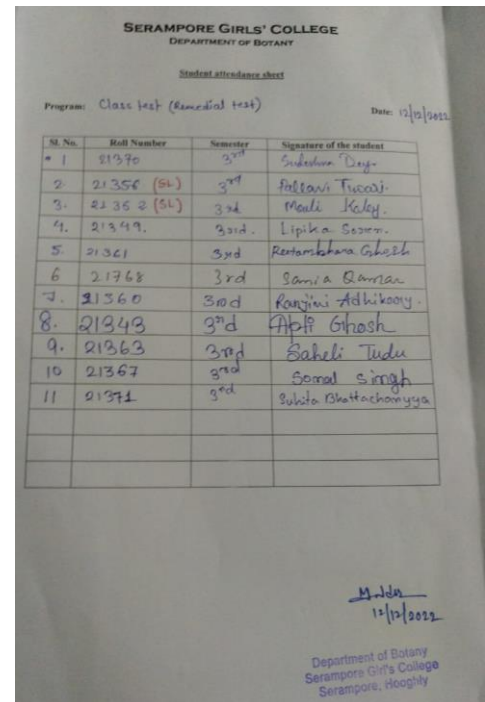 SERAMPORE GIRLS' COLLEGE
DEPARTMENT OF BOTANY
Student attendance sheet
Program: Class test (Remedial test)
Date: 12/12/2022
Sl. No. Roll Number Semester Signature of the student
1 21370 3rd Sudeshna Dey.
2. 21356 (SL) 3rd Pallavi Tiwari.
3. 21352 (SL) 3rd Mouli Koley.
4. 21349. 3rd. Lipika Soren.
5. 21361 3rd Ghosh
6 21768 3rd Samia Qamar
7. 21360 3rd Ranjini Adhikary.
8. 21343 3rd Apli Ghosh
9. 21363 3rd Saheli Tudu
10 21367 3rd Sonal Singh
11 21371 3rd Suhita Bhattacharyya
12/12/2022
Department of Botany
Serampore Girl's College
Serampore, Hooghly